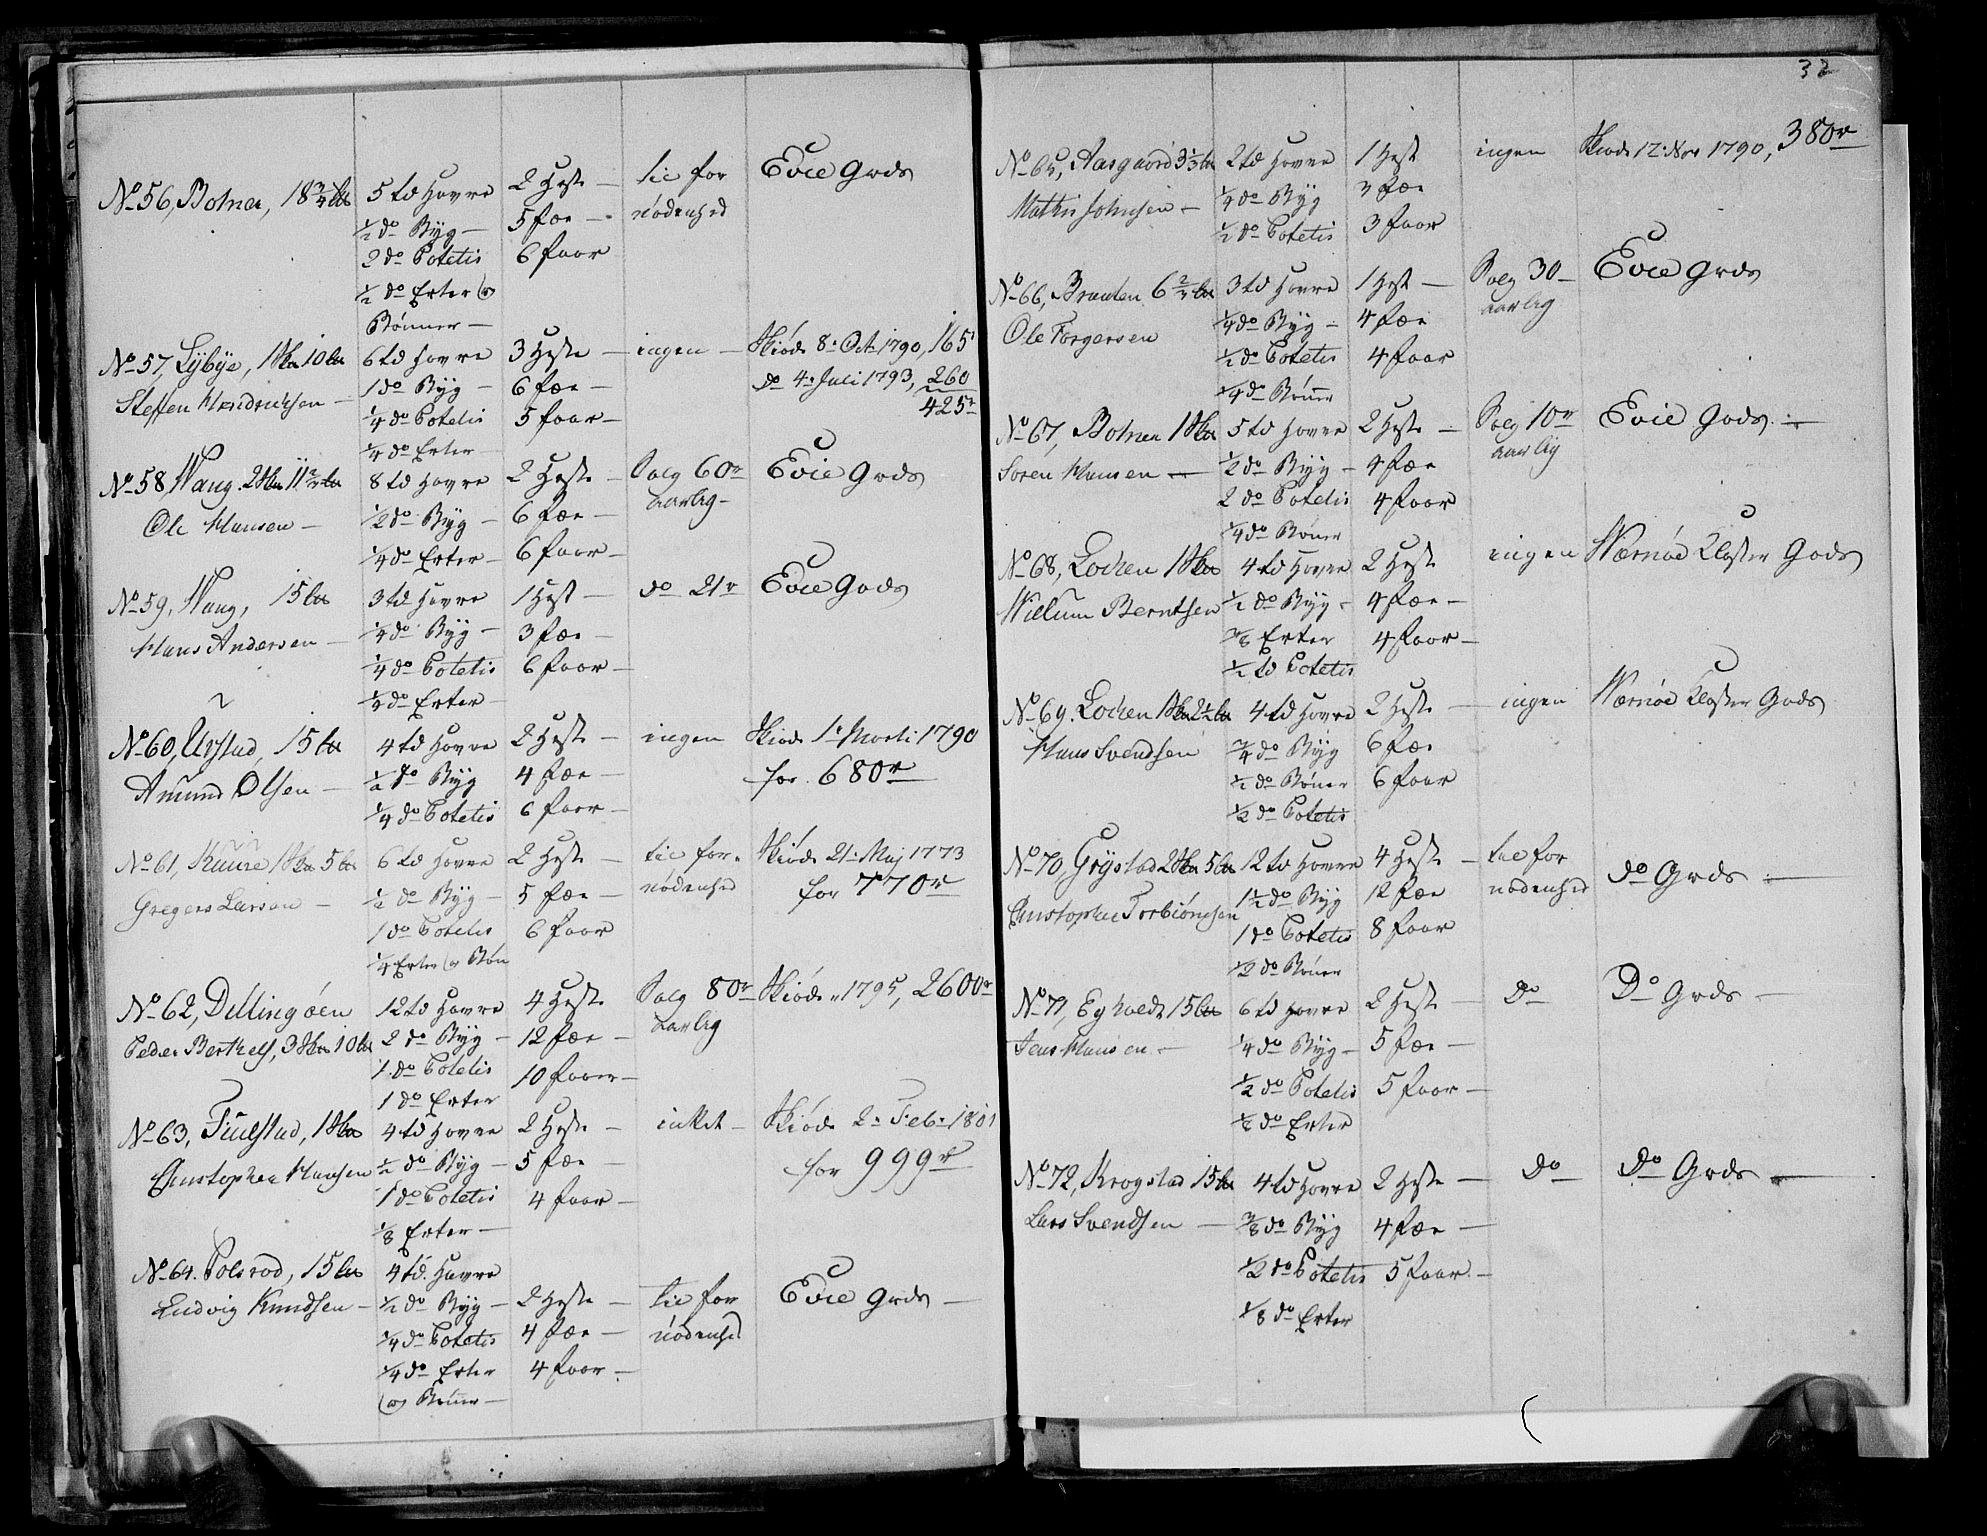 32
No 56, Botner, 18 3/4 lis
5 td Havre
1/2 do Byg —
2 do Potetis
1/2 do Erter og
Bønner —
2 Heste —
5 fæe —
6 faar
til for
nødenhed
Evie Gods
No 57, Lybye, 1 10
Steffen Hendrichsen —
6 td Havre
1 do Byg —
1/4 do Potetis
1/4 do Erter —
3 Heste —
6 fæe —
5 faar —
ingen —
Skiøde 8: Oct 1790, 165
do 4: Juli 1793, 260
425 r
No 58, Wang. 2 11
Ole Hansen —
8 td Havre
1/2 do Byg —
1/4 do Erter —
2 Heste —
6 fæe —
6 faar —
Salg 60 r
aarlig —
Evie Gods
No 59, Wang, 15
Hans Andersen —
3 td Havre
1/4 do Byg —
1/4 do Potetis
do Erter —
1 Hest —
3 fæe —
6 faar —
do 21 r
Evie Gods
No 60, Urstad, 15
Amund Olsen —
4 td Havre
1/2 do Byg
1/4 do Potetis
2 Heste —
4 fæe —
6 faar —
ingen
Skiøde 1: Marti 1790
for 680 r
No 61, Kuure 1 5
Gregers Larsen —
6 td Havre
1/2 do Byg —
1 do Potetis
1/4 Erter og Bøn
2 Heste —
5 fæe —
6 faar
til for
nødenhed
Skiøde 21: Maj 1773
for 770 r
No 62, Dillingøen
Peder Berthels, 3 10
12 td Havre
2 do Byg —
1 do Potetis
1 do Erter
4 Heste
12 fæe —
10 faar —
Salg 80 r
aarlig
Skiøde 1795, 2600 r
No 63, Fuulstad, 1
Christopher Hansen
4 td Havre
1/2 do Byg —
1 do Potetis
1/8 Erter —
2 Heste —
5 fæe —
4 faar —
intet —
Skiøde 2: Feb: 1801
for 999 r
No 64. Polsrod, 15
Ludvig Knudsen —
4 td. Havre
1/2 do Byg —
1/4 do Potetis
1/4 do Erter
og Bøner —
2 Heste —
4 fæe —
4 faar —
til for
nødenhed
Evie Gods —
No 65, Aasgaard 3 1/3
Mathis Johnsen —
2 td Havre
1/4 do Byg
1/2 do Potetis
1 Hest
3 fæe
3 faar
ingen
Skiøde 12: Nov 1790, 380 r
No 66, Braaten 6
Ole Torgersen
3 td Havre
1/4 do Byg —
1/2 do Potetis
1/4 do Bøner
1 Hest —
4 fæe
4 faar
Salg 30 —
aarlig
Evie Gods
No 67, Botner 1
Soren Hansen —
5 td Havre
1/2 do Byg —
2 do Potetis
1/4 do Bøner
2 Heste —
4 fæe
4 faar
Salg 10 r
aarlig
Evie Gods —
No 68, Lochen 1
Willum Berntsen
4 td Havre
1/2 do Byg —
3/8 Erter
1/2 td Potetis
2 Heste
4 fæe —
4 faar —
ingen
Wærnøe Closter Gods
No 69. Lochen 1 2 1/2
Hans Svendsen
4 td Havre
3/4 do Byg
1/2 do Bøner
1/2 do Potetis
2 Heste —
6 fæe
6 faar
ingen
Wærnøe Closter Gods
No 70, Grystad 2 5
Christopher Torbiønsen
12 td Havre
1 1/2 do Byg
1 do Potetis
1/2 do Bøner
4 Heste —
12 fæe
8 faar
til for
nødenhed
do Gods —
No 71, Egholdt 15
Jens Hansen —
6 td Havre
1/4 do Byg —
1/2 do Potetis
do Erter
2 Heste —
5 fæe —
5 faar —
Do
Do Gods —
No 72, Krogstad 15
Lars Svendsen —
4 td Havre
3/8 do Byg
1/2 do Potetis
1/8 do Erter
2 Heste —
4 fæe —
5 faar —
do
do Gods —